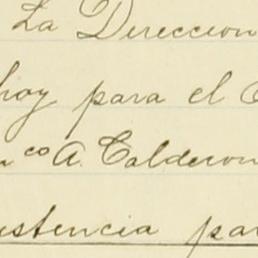 La Direccion
hoy para el
co A. Calderon
istencia par